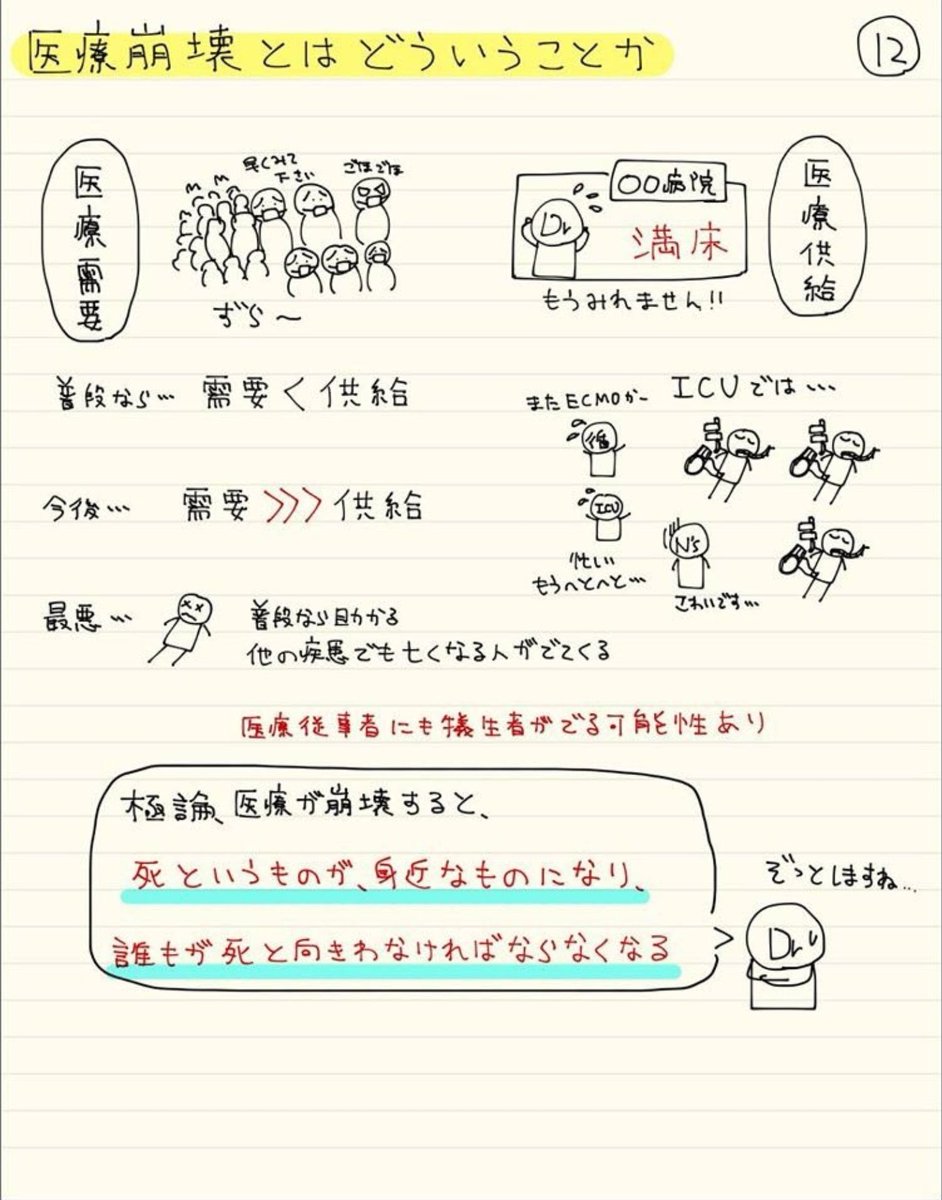 医療崩壊とはどういうことか
12
医療需要
早くみて
下さい
ごほごほ
ずら〜
〇〇病院
Dr
満床
もうみれません!!
医療供給
普段なら… 需要<供給
今後… 需要>>>供給
またECMOかー
ICUでは…
ICU
忙しい
もうへとへと…
N's
こわいです…
最悪…
普段なら助かる
他の疾患でも亡くなる人がでてくる
医療従事者にも犠牲者がでる可能性あり
極論、医療が崩壊すると、
死というものが、身近なものになり、
誰もが死と向きわなければならなくなる
ぞっとしますね…
Dr